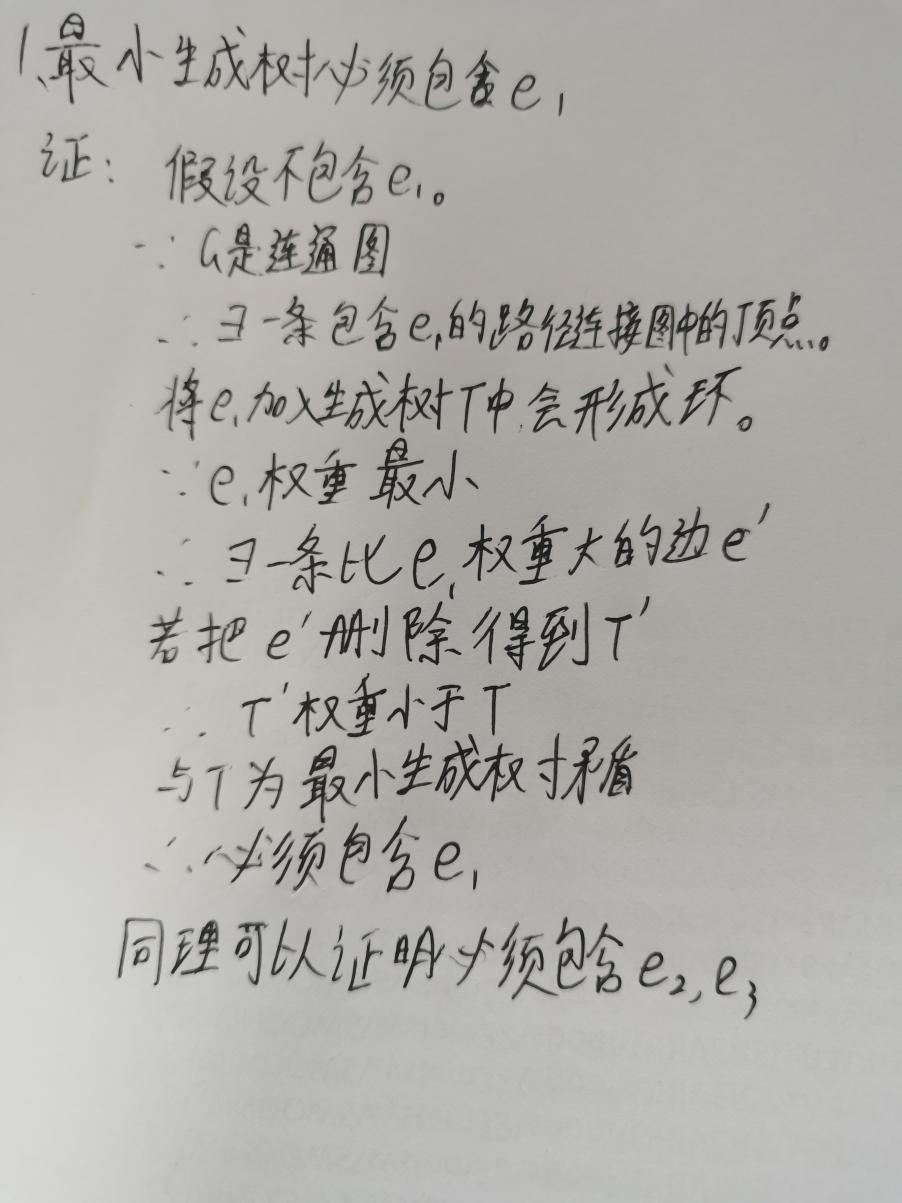 1、最小生成树必须包含e₁
证: 假设不包含e₁。
∵ G是连通图
∴ ∃一条包含e₁的路径连接图中的顶点。
将e₁加入生成树T中会形成环。
∵ e₁权重最小
∴ ∃一条比e₁权重大的边e'
若把e'删除得到T'
∴ T'权重小于T
与T为最小生成树矛盾
∴ 必须包含e₁
同理可以证明必须包含e₂,e₃